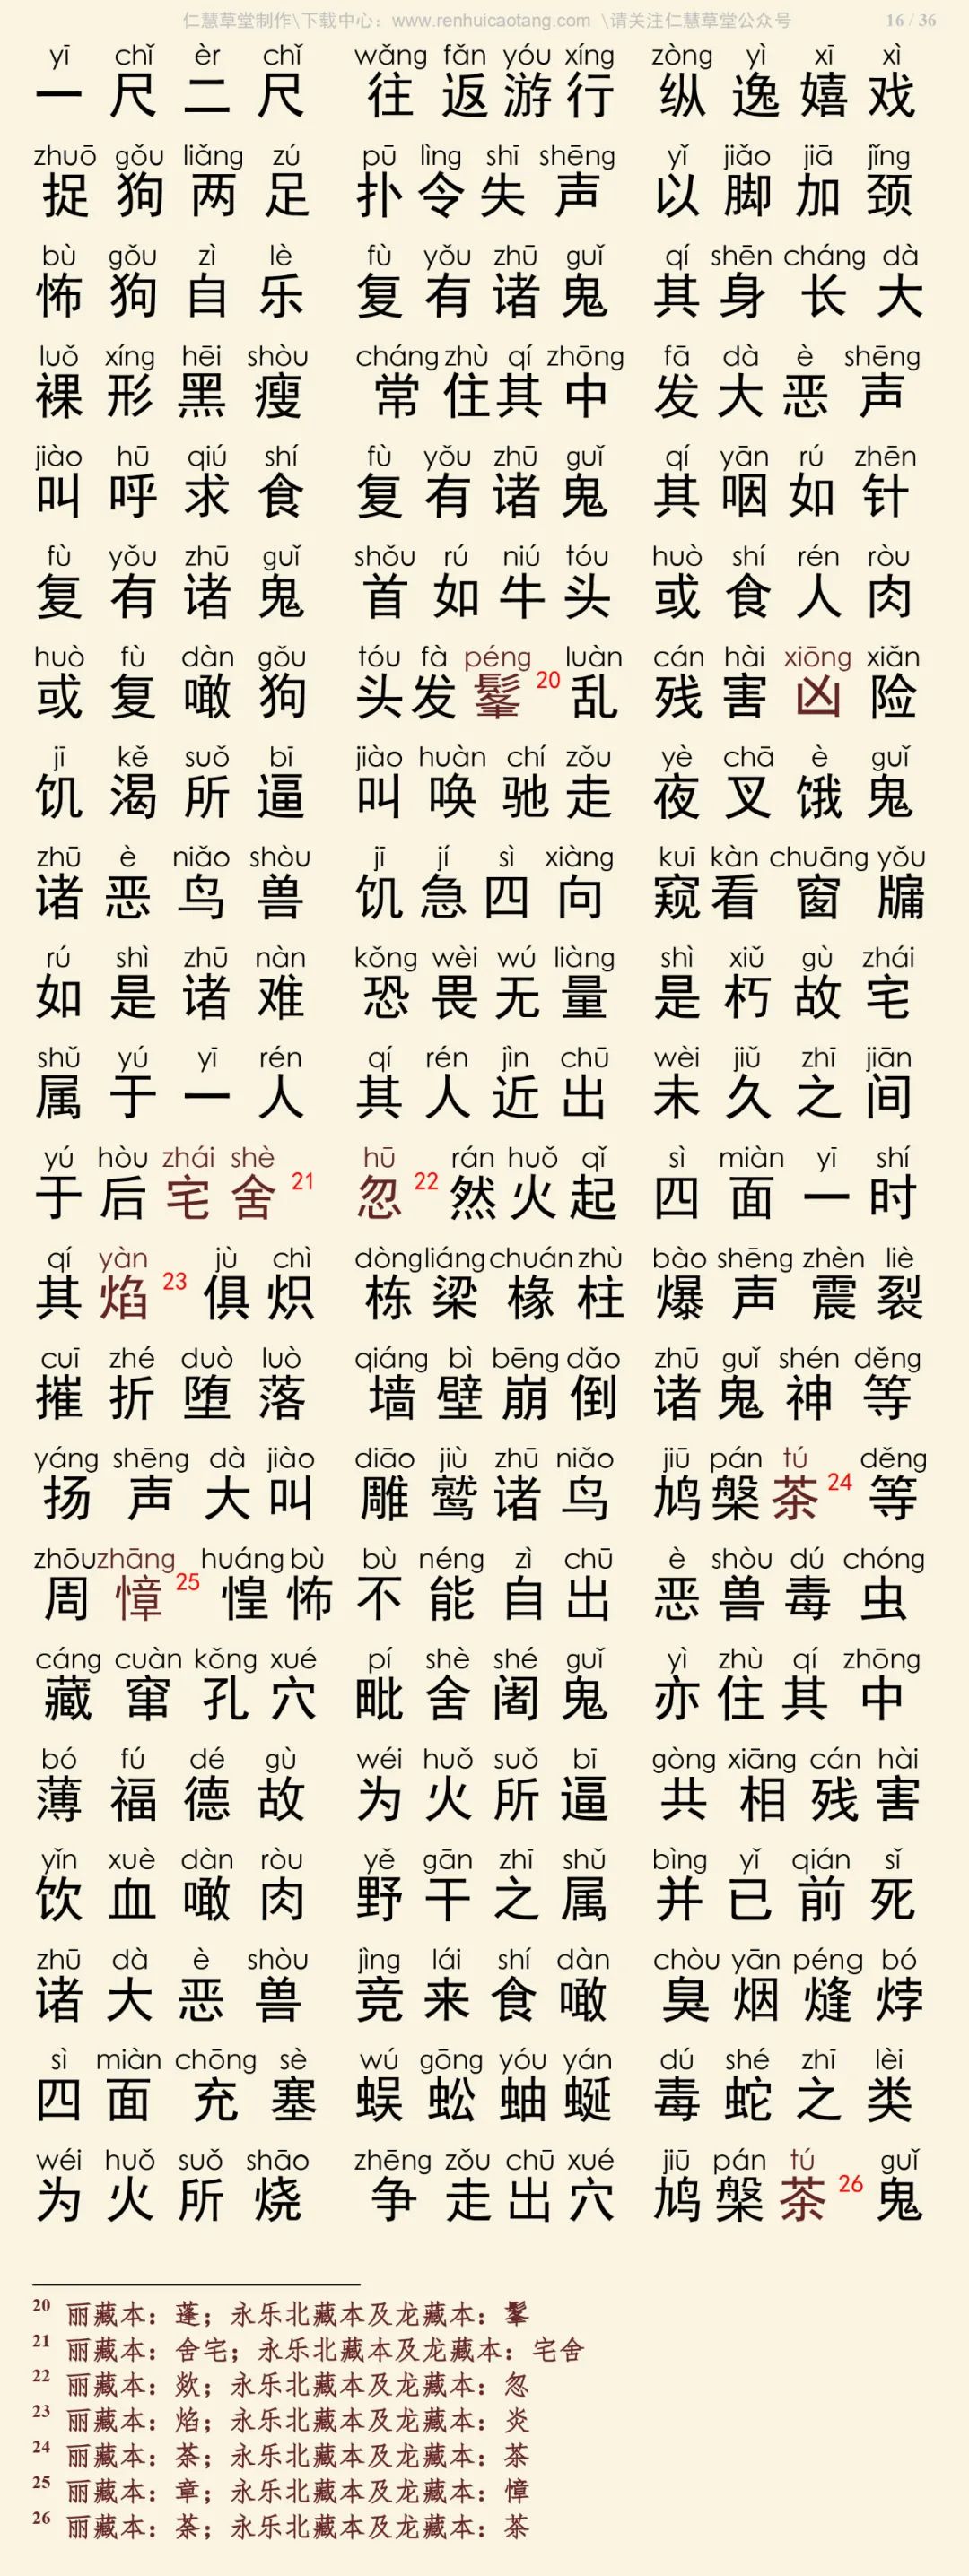 仁慧草堂制作\下载中心：www.renhuicaotang.com \请关注仁慧草堂公众号 16 / 36
yī chǐ èr chǐ wǎng fǎn yóu xíng zòng yì xī xì
一尺二尺 往返游行 纵逸嬉戏
zhuō gǒu liǎng zú pū lìng shī shēng yǐ jiǎo jiā jǐng
捉狗两足 扑令失声 以脚加颈
bù gǒu zì lè fù yǒu zhū guǐ qí shēn cháng dà
怖狗自乐 复有诸鬼 其身长大
luǒ xíng hēi shòu cháng zhù qí zhōng fā dà è shēng
裸形黑瘦 常住其中 发大恶声
jiào hū qiú shí fù yǒu zhū guǐ qí yān rú zhēn
叫呼求食 复有诸鬼 其咽如针
fù yǒu zhū guǐ shǒu rú niú tóu huò shí rén ròu
复有诸鬼 首如牛头 或食人肉
huò fù dàn gǒu tóu fà péng luàn cán hài xiōng xiǎn
或复噉狗 头发鬔20乱 残害凶险
jī kě suǒ bī jiào huàn chí zǒu yè chā è guǐ
饥渴所逼 叫唤驰走 夜叉饿鬼
zhū è niǎo shòu jī jí sì xiàng kuī kàn chuāng yǒu
诸恶鸟兽 饥急四向 窥看窗牖
rú shì zhū nàn kǒng wèi wú liàng shì xiǔ gù zhái
如是诸难 恐畏无量 是朽故宅
shǔ yú yī rén qí rén jìn chū wèi jiǔ zhī jiān
属于一人 其人近出 未久之间
yú hòu zhái shè hū rán huǒ qǐ sì miàn yī shí
于后宅舍21 忽22然火起 四面一时
qí yàn jù chì dòng liáng chuán zhù bào shēng zhèn liè
其焰23俱炽 栋梁椽柱 爆声震裂
cuī zhé duò luò qiáng bì bēng dǎo zhū guǐ shén děng
摧折堕落 墙壁崩倒 诸鬼神等
yáng shēng dà jiào diāo jiù zhū niǎo jiū pán tú děng
扬声大叫 雕鹫诸鸟 鸠槃荼24等
zhōu zhāng huáng bù bù néng zì chū è shòu dú chóng
周慞25惶怖 不能自出 恶兽毒虫
cáng cuàn kǒng xué pí shè shé guǐ yì zhù qí zhōng
藏窜孔穴 毗舍阇鬼 亦住其中
bó fú dé gù wéi huǒ suǒ bī gòng xiāng cán hài
薄福德故 为火所逼 共相残害
yǐn xuè dàn ròu yě gān zhī shǔ bìng yǐ qián sǐ
饮血噉肉 野干之属 并已前死
zhū dà è shòu jìng lái shí dàn chòu yān péng bó
诸大恶兽 竞来食噉 臭烟熢㶿
sì miàn chōng sè wú gōng yóu yán dú shé zhī lèi
四面充塞 蜈蚣蚰蜒 毒蛇之类
wéi huǒ suǒ shāo zhēng zǒu chū xué jiū pán tú guǐ
为火所烧 争走出穴 鸠槃荼26鬼
20 丽藏本：蓬；永乐北藏本及龙藏本：鬔
21 丽藏本：舍宅；永乐北藏本及龙藏本：宅舍
22 丽藏本：欻；永乐北藏本及龙藏本：忽
23 丽藏本：焰；永乐北藏本及龙藏本：炎
24 丽藏本：荼；永乐北藏本及龙藏本：茶
25 丽藏本：章；永乐北藏本及龙藏本：慞
26 丽藏本：荼；永乐北藏本及龙藏本：茶